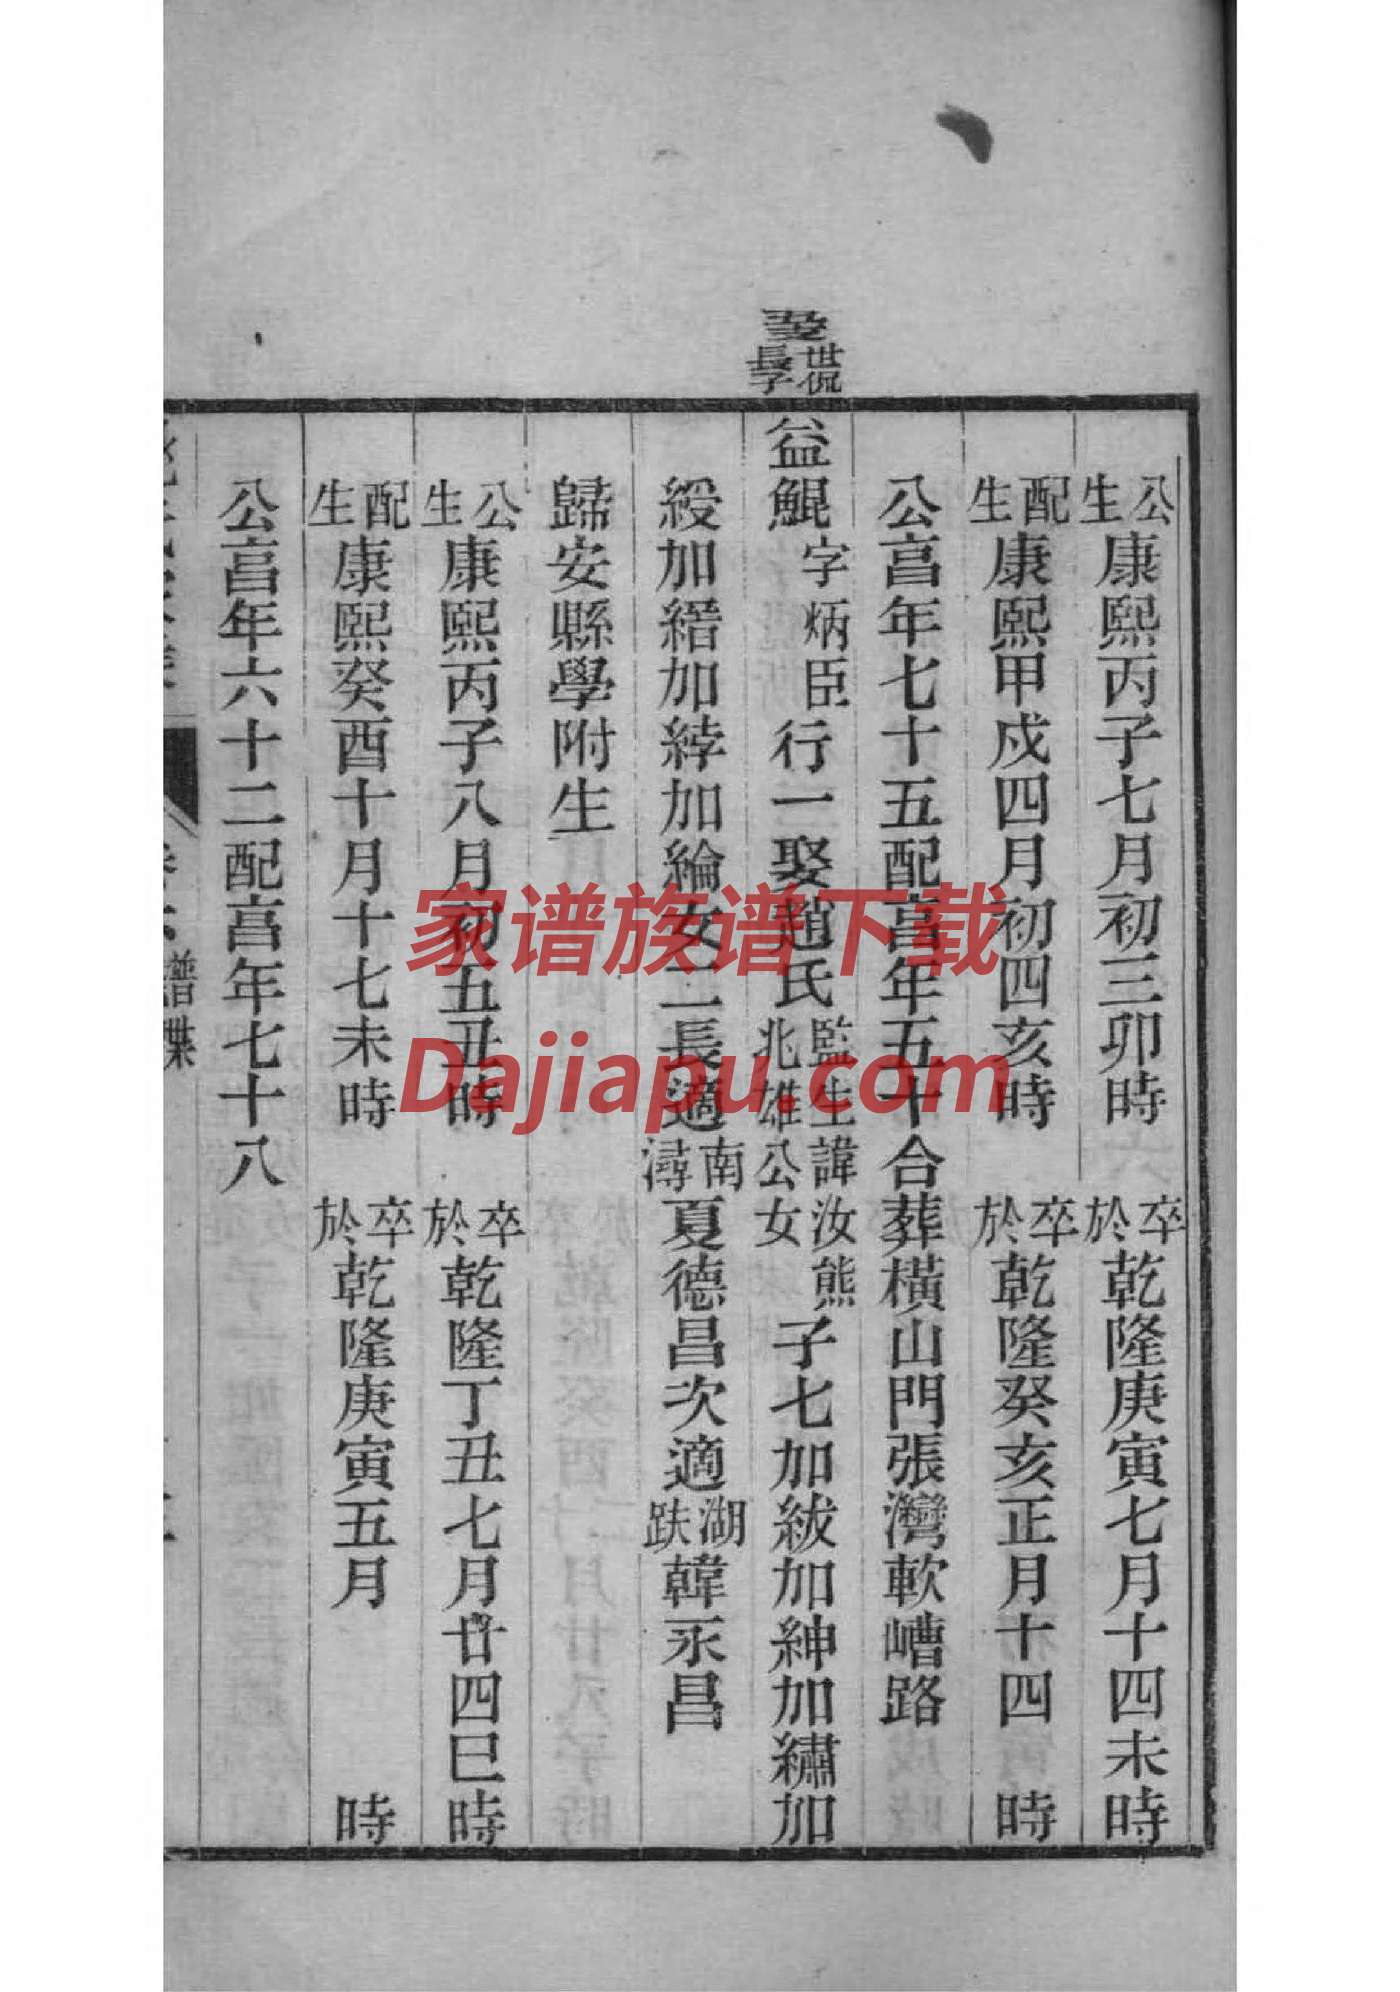 公生康熙丙子七月初三卯時 卒於乾隆庚寅七月十四未時
配生康熙甲戌四月初四亥時 卒於乾隆癸亥正月十四 時
公亯年七十五配亯年五十合葬橫山門張灣軟嶆路
世侃長子
益鯤字炳臣行一娶趙氏監生諱汝熊兆雄公女子七加紱加紳加繡加
綬加縉加綍加綸女二長適南潯夏德昌次適湖趺韓永昌
歸安縣學附生
公生康熙丙子八月初五丑時 卒於乾隆丁丑七月廿四巳時
配生康熙癸酉十月十七未時 卒於乾隆庚寅五月 時
公亯年六十二配亯年七十八
譜牒
家谱族谱下载
Dajiapu.com